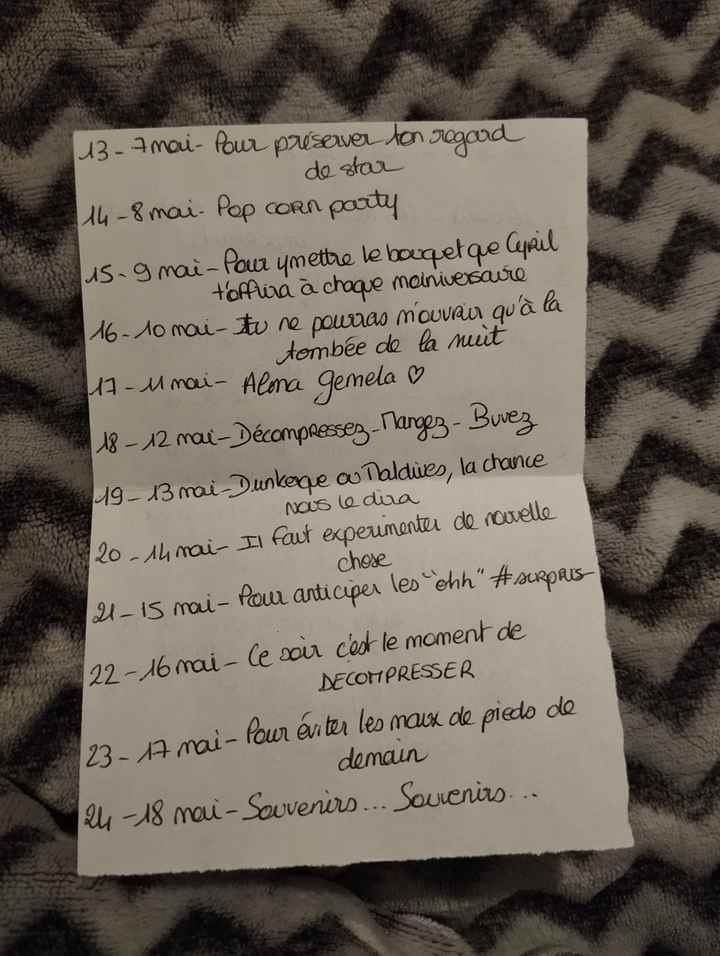 13 - 7 mai - Pour préserver ton regard
de star
14 - 8 mai - Pop corn party
15 - 9 mai - Pour y mettre le bouquet que Cyril
t'offrira à chaque moiniversaire
16 - 10 mai - Tu ne pourras m'ouvrir qu'à la
tombée de la nuit
17 - 11 mai - Alma gemela ♡
18 - 12 mai - Décompressez - Mangez - Buvez
19 - 13 mai - Dunkerque ou Maldives, la chance
nous le dira
20 - 14 mai - Il faut experimenter de nouvelle
chose
21 - 15 mai - Pour anticiper les "ehh" #surpris
22 - 16 mai - Ce soir c'est le moment de
DECOMPRESSER
23 - 17 mai - Pour éviter les maux de pieds de
demain
24 - 18 mai - Souvenirs... Souvenirs...